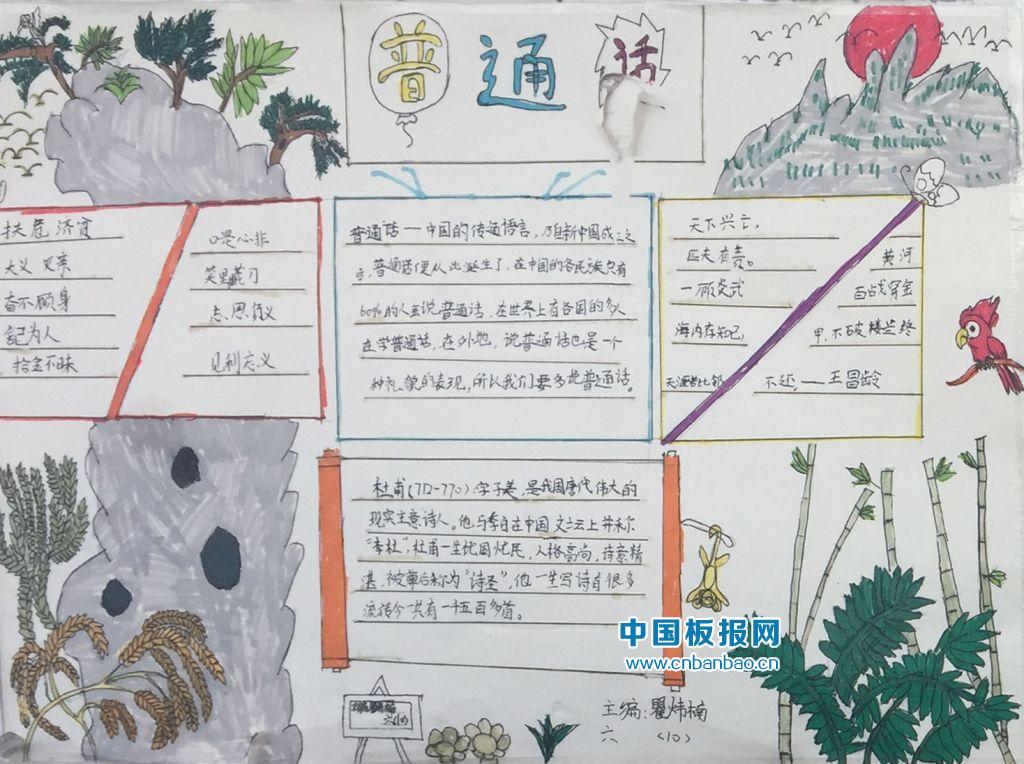 普通话
扶危济贫
大义灭亲
奋不顾身
记为人
拾金不昧
口是心非
笑里藏刀
见利忘义
普通话——中国的传通语言，乃自新中国成立之
普通话便从此诞生了，在中国的各民族只有
60%的人会说普通话，在世界上有各国的多人
在学普通话，在外地，说普通话也是一个
种礼貌的表现，所以我们要多是普通话。
天下兴亡，
匹夫有责。
海内存知己，
天涯若比邻
黄河
百战穿金
甲，不破楼兰终
不还，——王昌龄
杜甫(712-770)：字子美，是我国唐代伟大的
现实主意诗人。他与李白在中国文坛上并称
“李杜”，杜甫一生忧国忧民，人格高尚，诗意精
湛，被尊后称为“诗圣”，他一生写诗有很多
流传今一共有一千五百多首。
中国板报网
www.cnbanbao.cn
主编：瞿炜楠
六 (10)